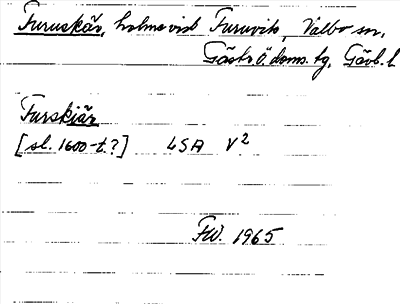 Furuskär, holme vid Furuvik, Valbo sn,
Gästr. Ö. doms. tg, Gävl. l.
Furskiär
[sl. 1600-t.?] LSA V²
FW. 1965